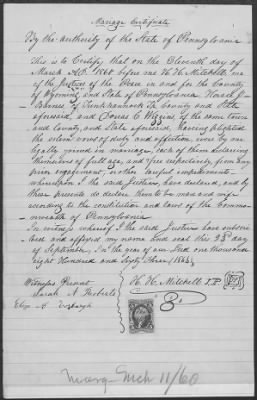 Marriage Certificate
By the authority of the State of Pennsylvania
This is to Certify that on the Eleventh day of
March A.D. 1860 before me H. H. Mitchell one
of the Justices of the Peace in and for the County
of Wyoming and State of Pennsylvania Horace J.
of Tunkhannock Tp County and State
aforesaid, and C of the same town
and County and State aforesaid, having plighted
the solemn vows of duty and affection, were by me
legally joined in marriage, each of them declaring
themselves of full age, and free respectively from any
prior engagement, or other lawful impediments
whereupon I the said Justice, have declared, and by
these presents do declare them to be man and wife
according to the constitution and laws of the Common-
wealth of Pennsylvania
In witness whereof I the said Justice have subscri-
bed and affixed my name and seal this 23d day
of September In the year of our Lord one thousand
eight Hundred and Sixty three (1863)
Witnesses Present
H. H. Mitchell J.P.
Sarah A
Marg Mch 11/60